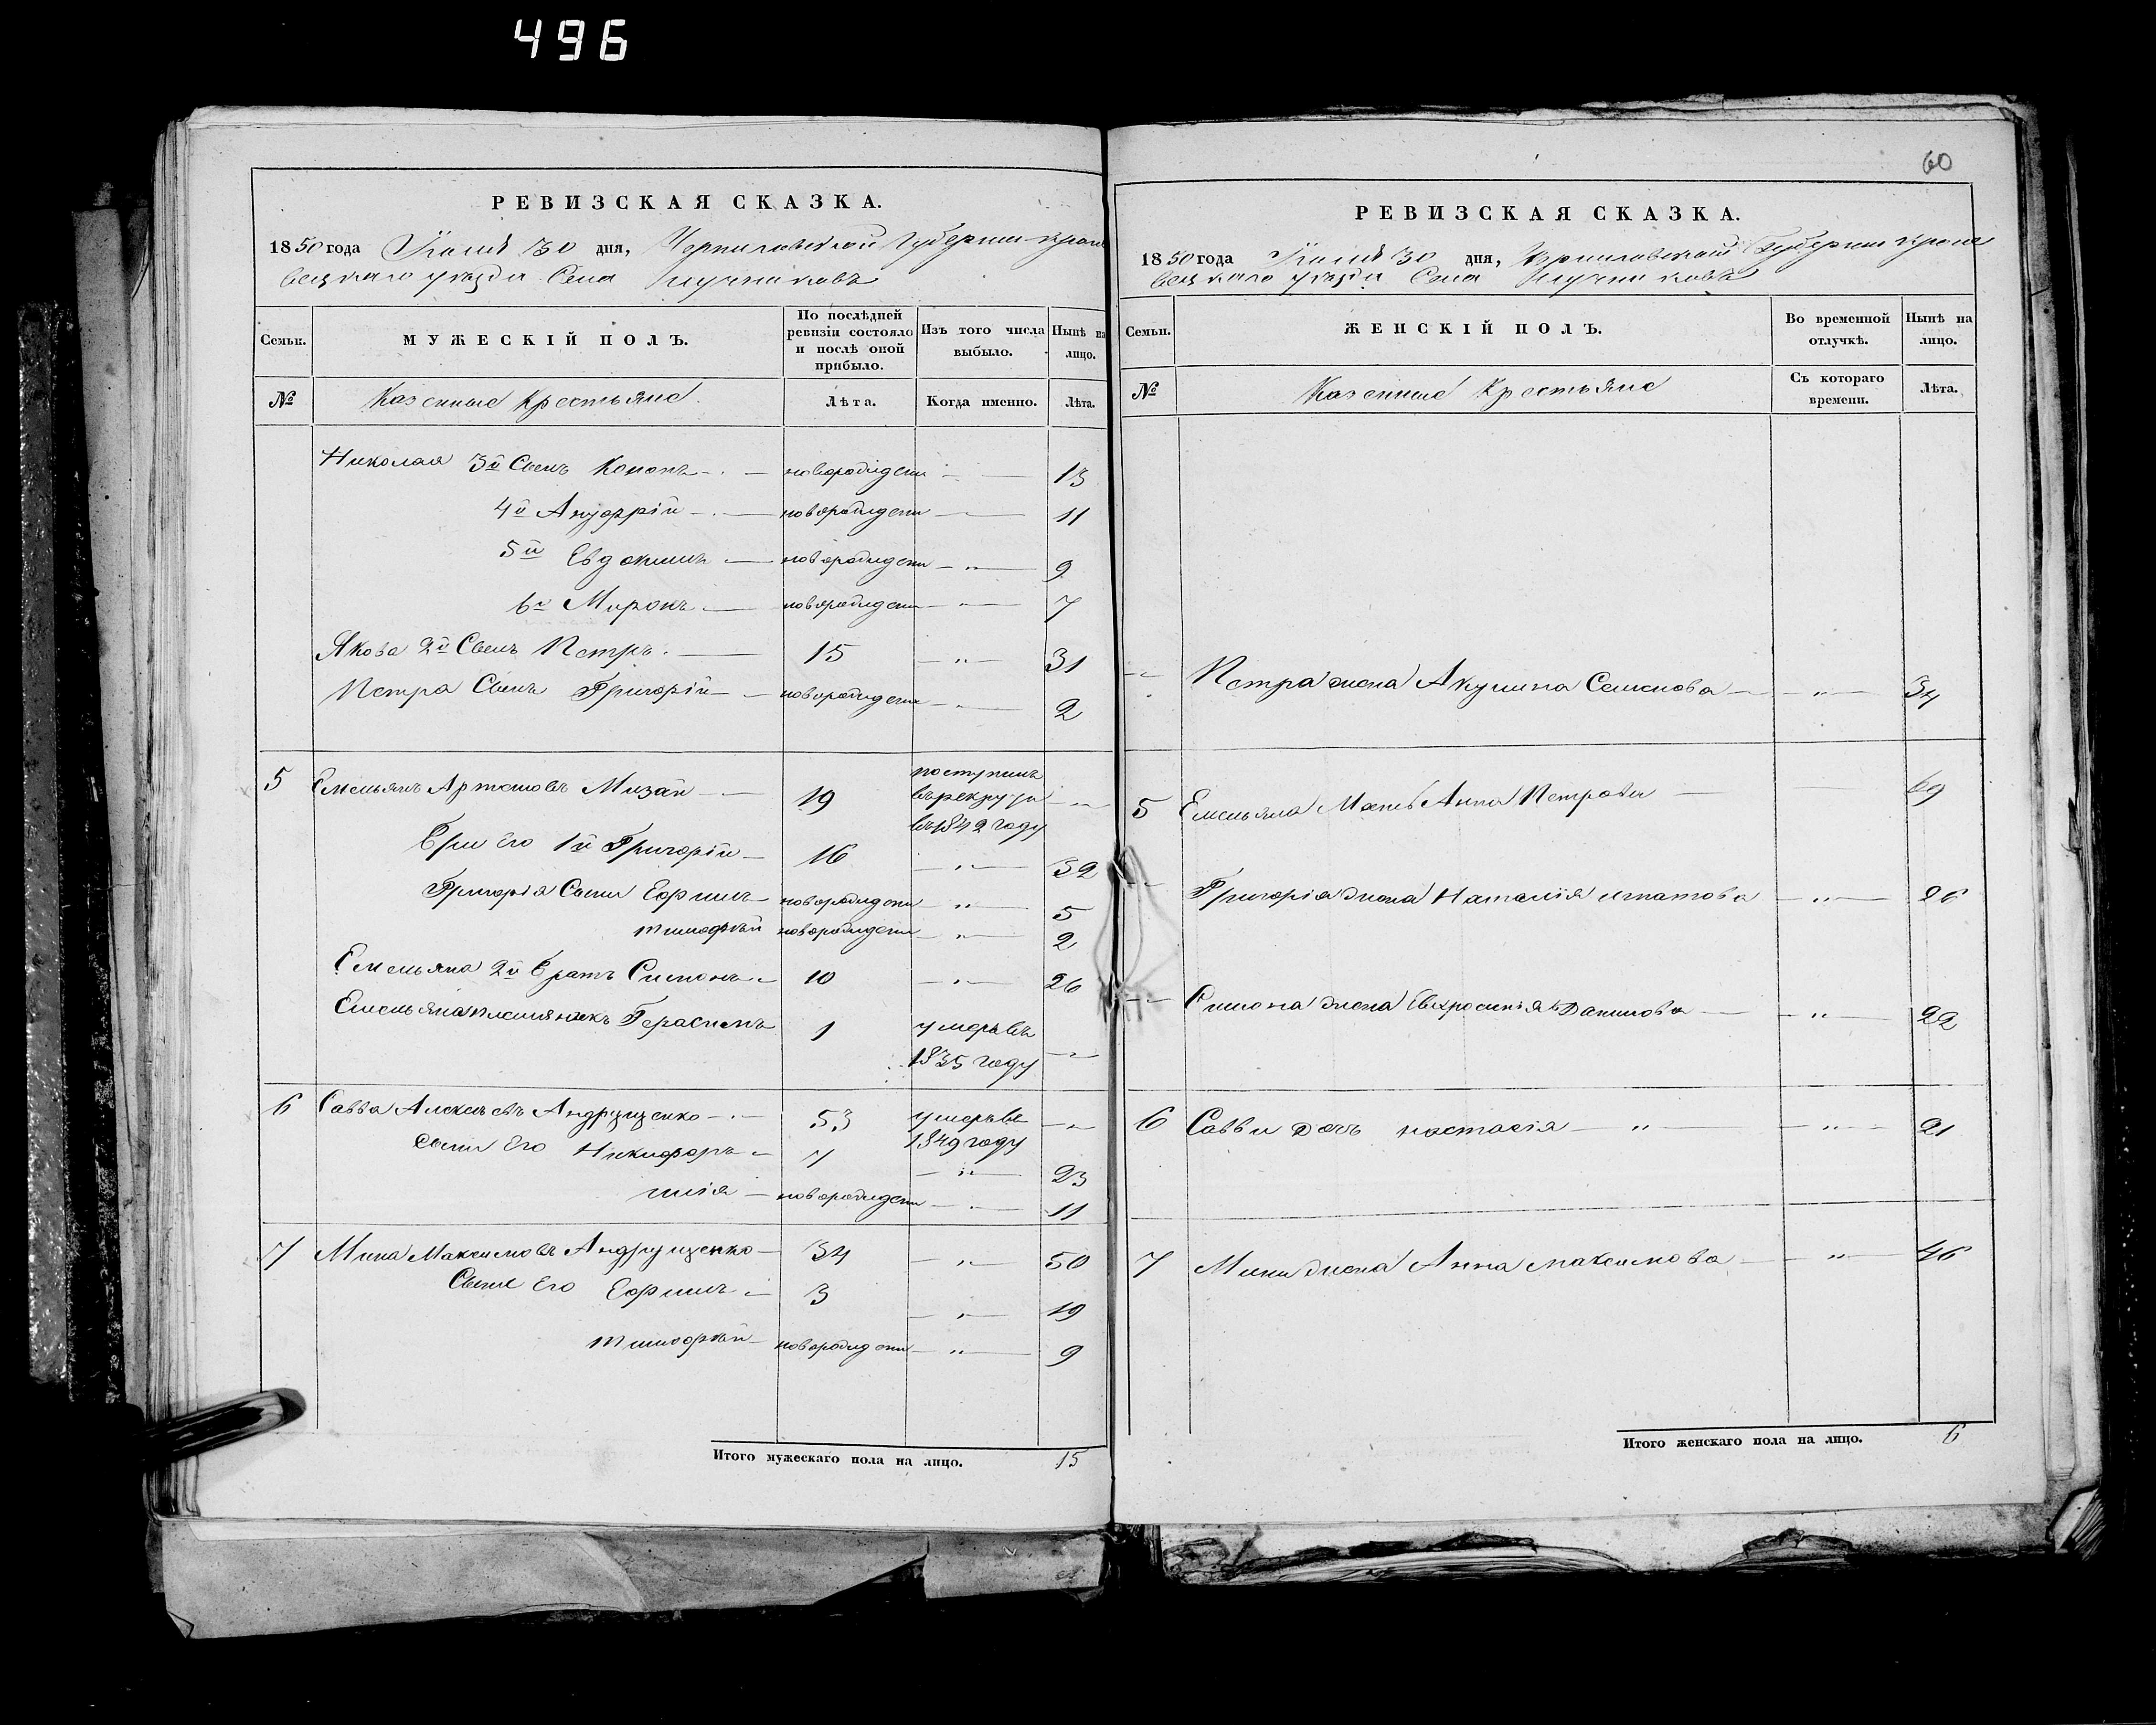 496
РЕВИЗСКАЯ СКАЗКА.
1850 года Юля 30 дня, Черниговской Губернии Кроле
вецкаго уезда Села
Семьи. МУЖЕСКІЙ ПОЛЪ. По послѣдней ревизіи состояло и послѣ оной прибыло. Изъ того числа выбыло. Нынѣ на лицо.
№ Казенные Крестьяне. Лѣта. Когда именно. Лѣта.
Николая 3й Сынъ Кононъ новорожденн 13
4й Ануфрій новорожденн 11
5й Евдокимъ новорожденн 9
6й Миронъ новорожденн 7
Якова 2й Сынъ Петръ 15 31
Петра Сынъ Григорій новорожденн 2
5 Емельянъ Артемовъ Мизинъ 19 поступилъ
в рекруты
въ 1842 году
его 1й Григорій 16 32
Григорія Сыны Ефимъ новорожденн 5
тимофѣй новорожденн 2
Емельяна 2й братъ Симонъ 10 26
Емельяна племяникъ Герасимъ 1 умеръ въ
1835 году
6 Савва Алексѣевъ Андрущенко 53 умеръ въ
1849 году
Сыны Его Никифоръ 7 23
илія новорожденн 11
7 Мина Максимовъ Андрущенко 34 50
Сыны Его Ефимъ 3 19
тимофѣй новорожденн 9
Итого мужескаго пола на лицо. 15
60
РЕВИЗСКАЯ СКАЗКА.
1850 года Юля 30 дня, Черниговской Губернии Кроле
вецкаго уезда Села
Семьи. ЖЕНСКІЙ ПОЛЪ. Во временной отлучкѣ. Нынѣ на лицо.
№ Казенные Крестьяне Съ котораго времени. Лѣта.
Петра жена Акулина Семенова 34
5 Емельяна Мать Анна Петрова 69
Григорія жена Наталія игнатова 26
Симона жена Евфросинія Данилова 22
6 Саввы Дочь настасія 21
7 Мины жена Анна максимова 46
Итого женскаго пола на лицо. 6